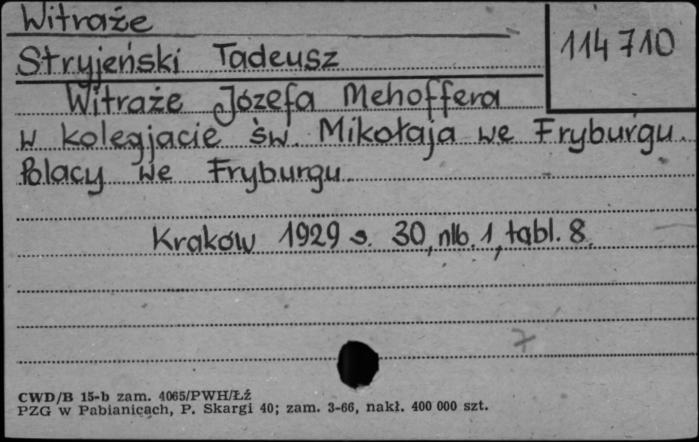 Witraże
114710
Stryjeński Tadeusz
Witraże Józefa Mehoffera
w kolegjacie św. Mikołaja we Fryburgu.
Polacy we Fryburgu.
Kraków 1929 s. 30, nlb. 1, tabl. 8.
7
CWD/B 15-b zam. 4065/PWH/Łź
PZG w Pabianicach, P. Skargi 40; zam. 3-66, nakł. 400 000 szt.